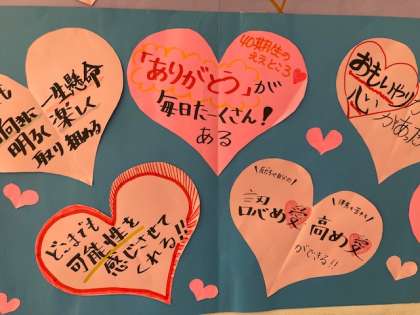 も
一生懸命
向に
楽しく
明るく
取り組める
40期生の
ええところ
「ありがとう」が
毎日たーくさん!
ある
おもいやり
心
があ
どこまでも
可能性を
感じさせて
くれる!!
認め愛
高め愛
ができる!!